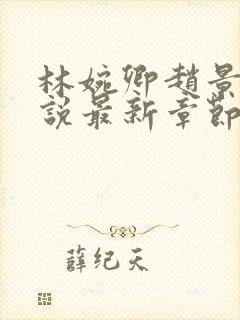 林婉卿趙景
說最新章節
薛纪天